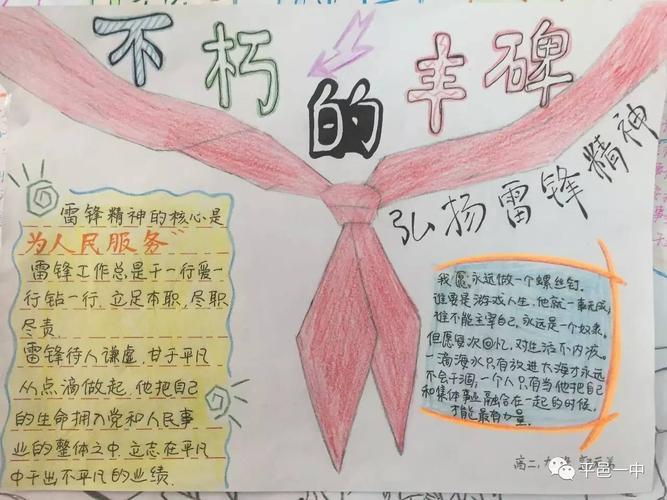 不朽的丰碑
弘扬雷锋精神
雷锋精神的核心是
为人民服务”
雷锋工作总是干一行爱一
行钻一行,立足本职,尽职
尽责.
雷锋待人谦虚,甘于平凡
从点滴做起,他把自己
的生命拥入党和人民事
业的整体之中,立志在平凡
中干出不平凡的业绩.
我愿永远做一个螺丝钉.
谁要是游戏人生,他就一事无成,
谁不能主宰自己,永远是一个奴隶.
但愿每次回忆,对生活不内疚.
一滴海水只有放进大海才永远
不会干涸,一个人只有当他把自己
和集体事业融合在一起的时候,
才能最有力量.
高二,
平邑一中